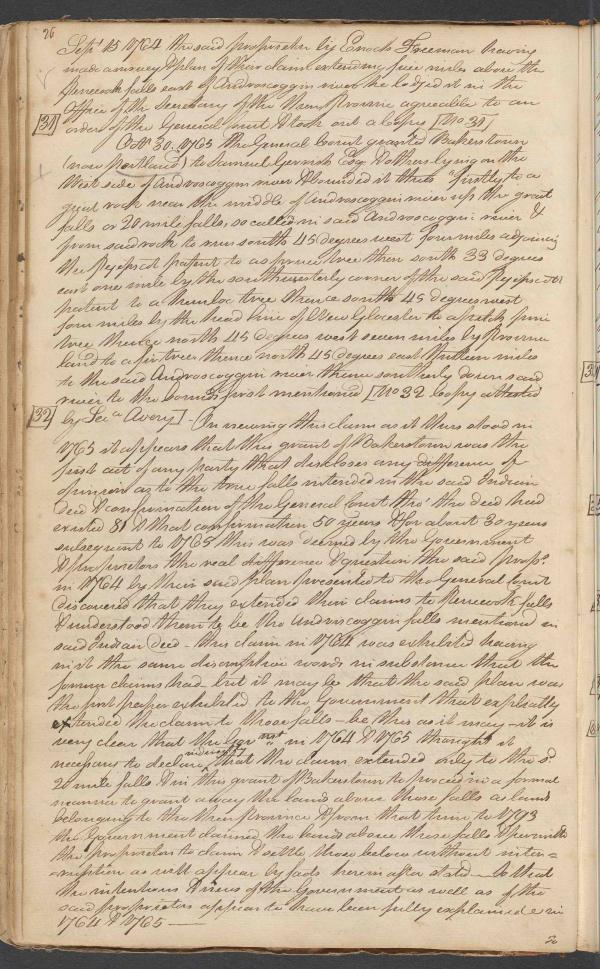 26
Sept 15 1764 the said proprietors by Enoch Freeman having
made a survey & plan of their claim extending five miles above the
falls east of Androscoggin river he lodged it in the
Office of the Secretary of the then province agreeable to an
31
order of the General Court & took out a copy [No 31]
Octr 30. 1765 the General Court granted Bakerstown
(now Portland) to Samuel Gerrish Esq & others lying on the
West side of Androscoggin river & bounded it thus "firstly to a
great rock near the middle of Androscoggin river up the great
falls or 20 mile falls, so called in said Androscoggin river &
from said rock to run south 45 degrees west four miles adjoining
the Pejepscot patent to a spruce tree then south 33 degrees
east one mile by the southwesterly corner of the said Pejepscot
patent to a hemloc tree thence south 45 degrees west
four miles by the head line of New Glocester to a pitch pine
tree thence north 45 degrees west seven miles by province
land to a fir tree thence north 45 degrees east thirteen miles
to the said Androscoggin river thence southerly down said
river to the bounds first mentioned [No 32 Copy attested
32
by Seca Avery] - On viewing this claim as it thus stood in
1765 it appears that this grant of Bakerstown was the
first act of any party that discloses any difference of
opinion as to the true falls intended in the said Indian
deed & confirmation of the General Court tho' the deed had
existed 81 & that confirmation 50 years & for about 30 years
subsequent to 1765 this was deemed by the Government
& proprietors the real difference & question the said props
in 1764 by their said plan presented to the General Court
discovered that they extended their claims to falls
& understood them to be the Androscoggin falls mentioned in
said Indian Deed - this claim in 1764 was exhibited having
in it the same discriptive words in substance that the
former claims had - but it may be that the said plan was
the first paper exhibited to the Government that explicitly
extended the claim to those falls - be this as it may - it is
very clear that the not in 1764 & 1765 thought it
necessary to declare that the claim extended only to the sd
20 mile falls & in this grant of Bakerstown to proceed in a formal
manner to grant away the lands above those falls as lands
belonging to the then province & from that time to 1793
the Government claimed the lands above those falls & permitted
the proprietors to claim & settle those below without inter=
=ruption as will appear by facts herein after stated - so that
the intentions & views of the Government as well as of the
said proprietors appear to have been fully explained in
1764 & 1765 —